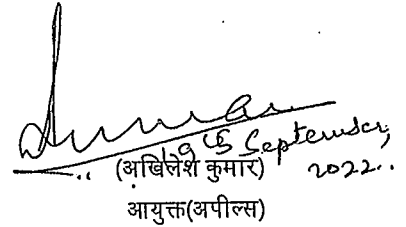 19th September,
2022.
(अखिलेश कुमार)
आयुक्त(अपील्स)